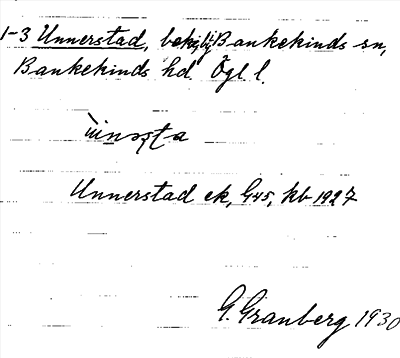 1-3 Unnerstad, bebyggt, Bankekinds sn,
Bankekinds hd. Ögl l.
Unnerstad ek, G45, kb 1927
G. Granberg 1930